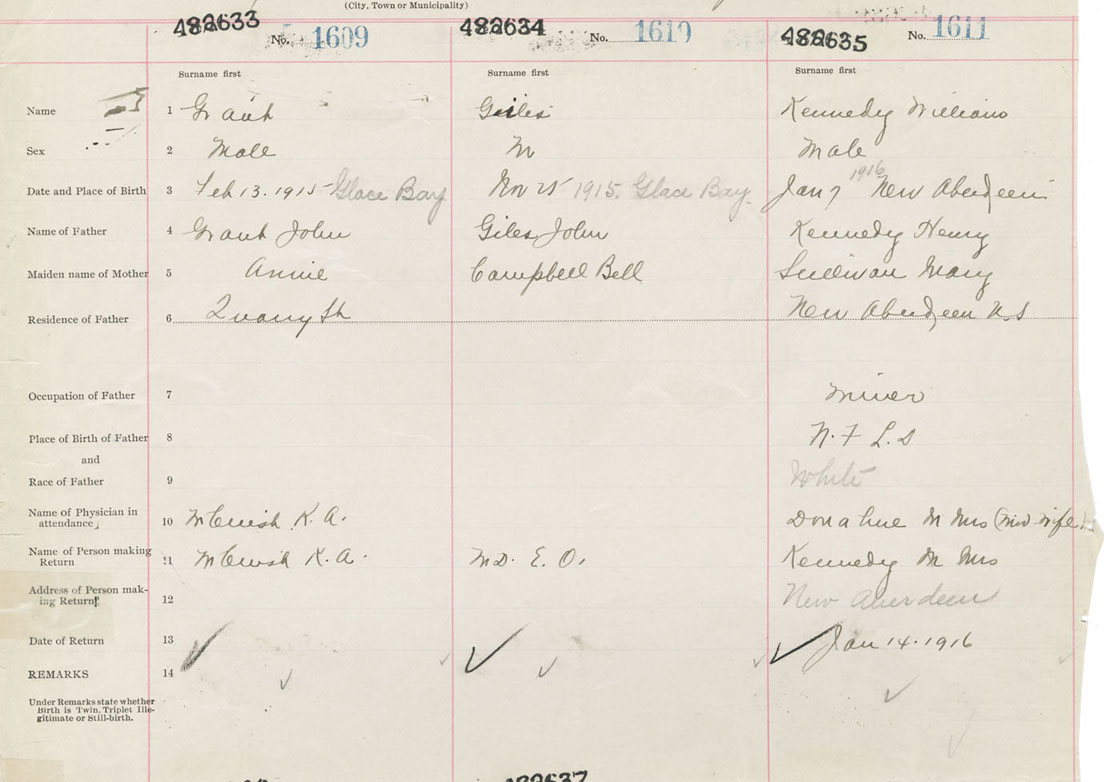 (City, Town or Municipality)
482633 No. 1609 482634 No. 1610 482635 No. 1611
Surname first Surname first Surname first
Name 1 Grant Giles Kennedy William
Sex 2 Male M Male
1916
Date and Place of Birth 3 Feb 13. 1915 Glace Bay Nov 25 1915. Glace Bay Jan 7 New Aberdeen
Name of Father 4 Grant John Giles John Kennedy Henry
Maiden name of Mother 5 Annie Campbell Bell Sullivan Mary
Residence of Father 6 Quarry St New Aberdeen N.S
Occupation of Father 7 Miner
Place of Birth of Father 8 N. F L. d
and
Race of Father 9 White
Name of Physician in
attendance 10 K. A. Donahue M Mrs (Midwife)
Name of Person making
Return 11 K. A. M.D. E. O. Kennedy M Mrs
Address of Person mak-
ing Return 12 New Aberdeen
Date of Return 13 Jan 14. 1916
REMARKS 14
Under Remarks state whether
Birth is Twin, Triplet Ille-
gitimate or Still-birth.
482637